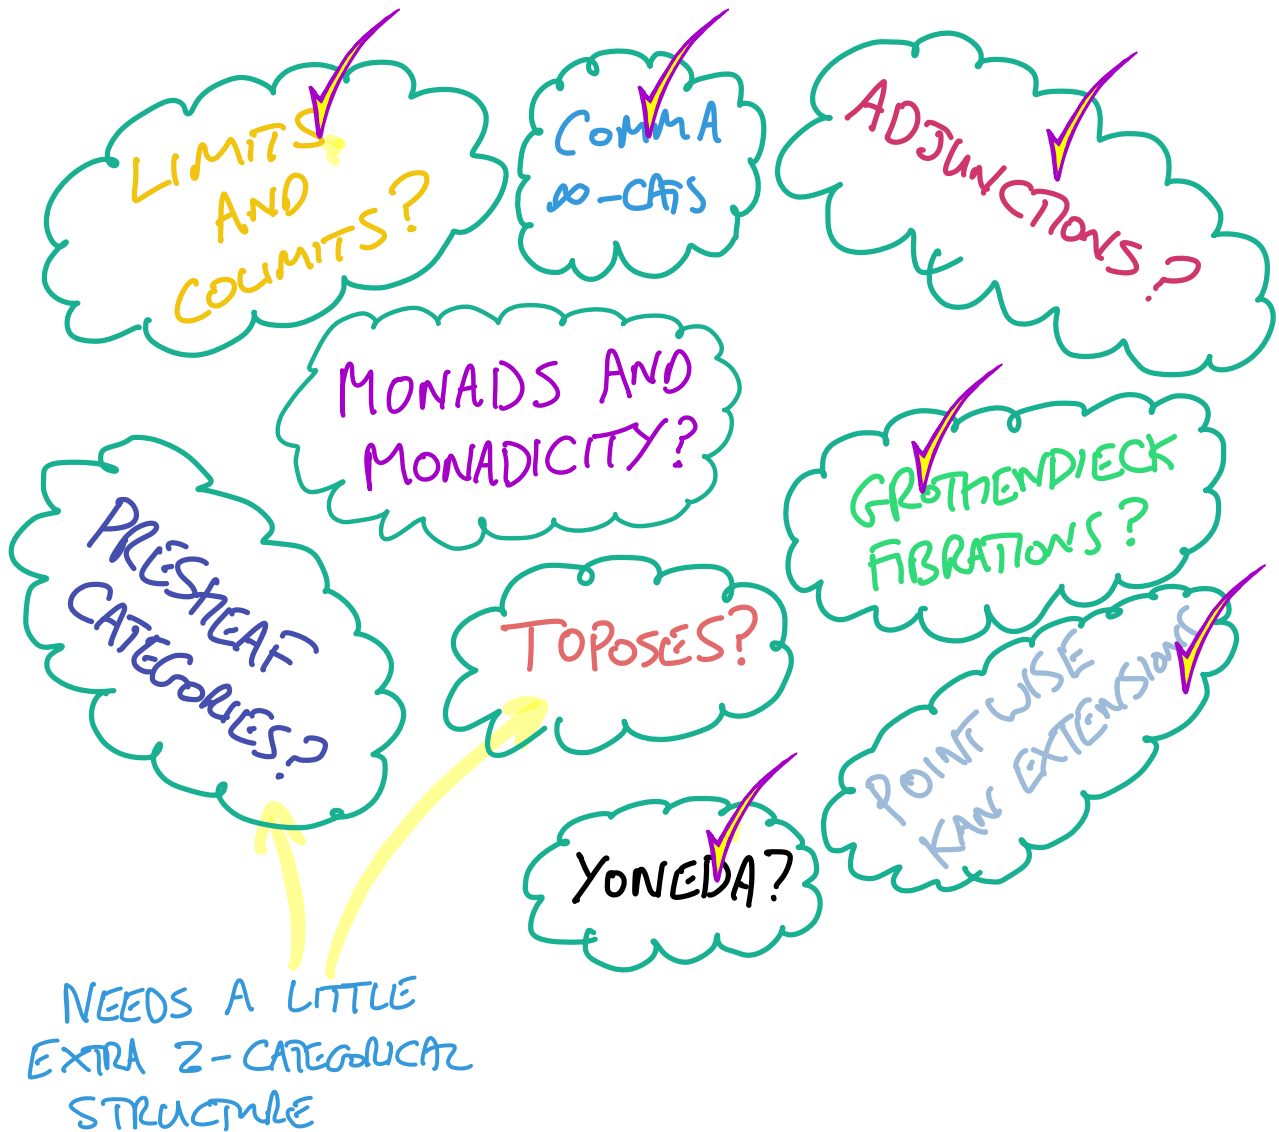 LIMITS
AND
COLIMITS?
COMMA
∞-CATS
ADJUNCTIONS?
MONADS AND
MONADICITY?
GROTHENDIECK
FIBRATIONS?
PRESHEAF
CATEGORIES?
TOPOSES?
POINTWISE
KAN EXTENSIONS
YONEDA?
NEEDS A LITTLE
EXTRA 2-CATEGORICAL
STRUCTURE